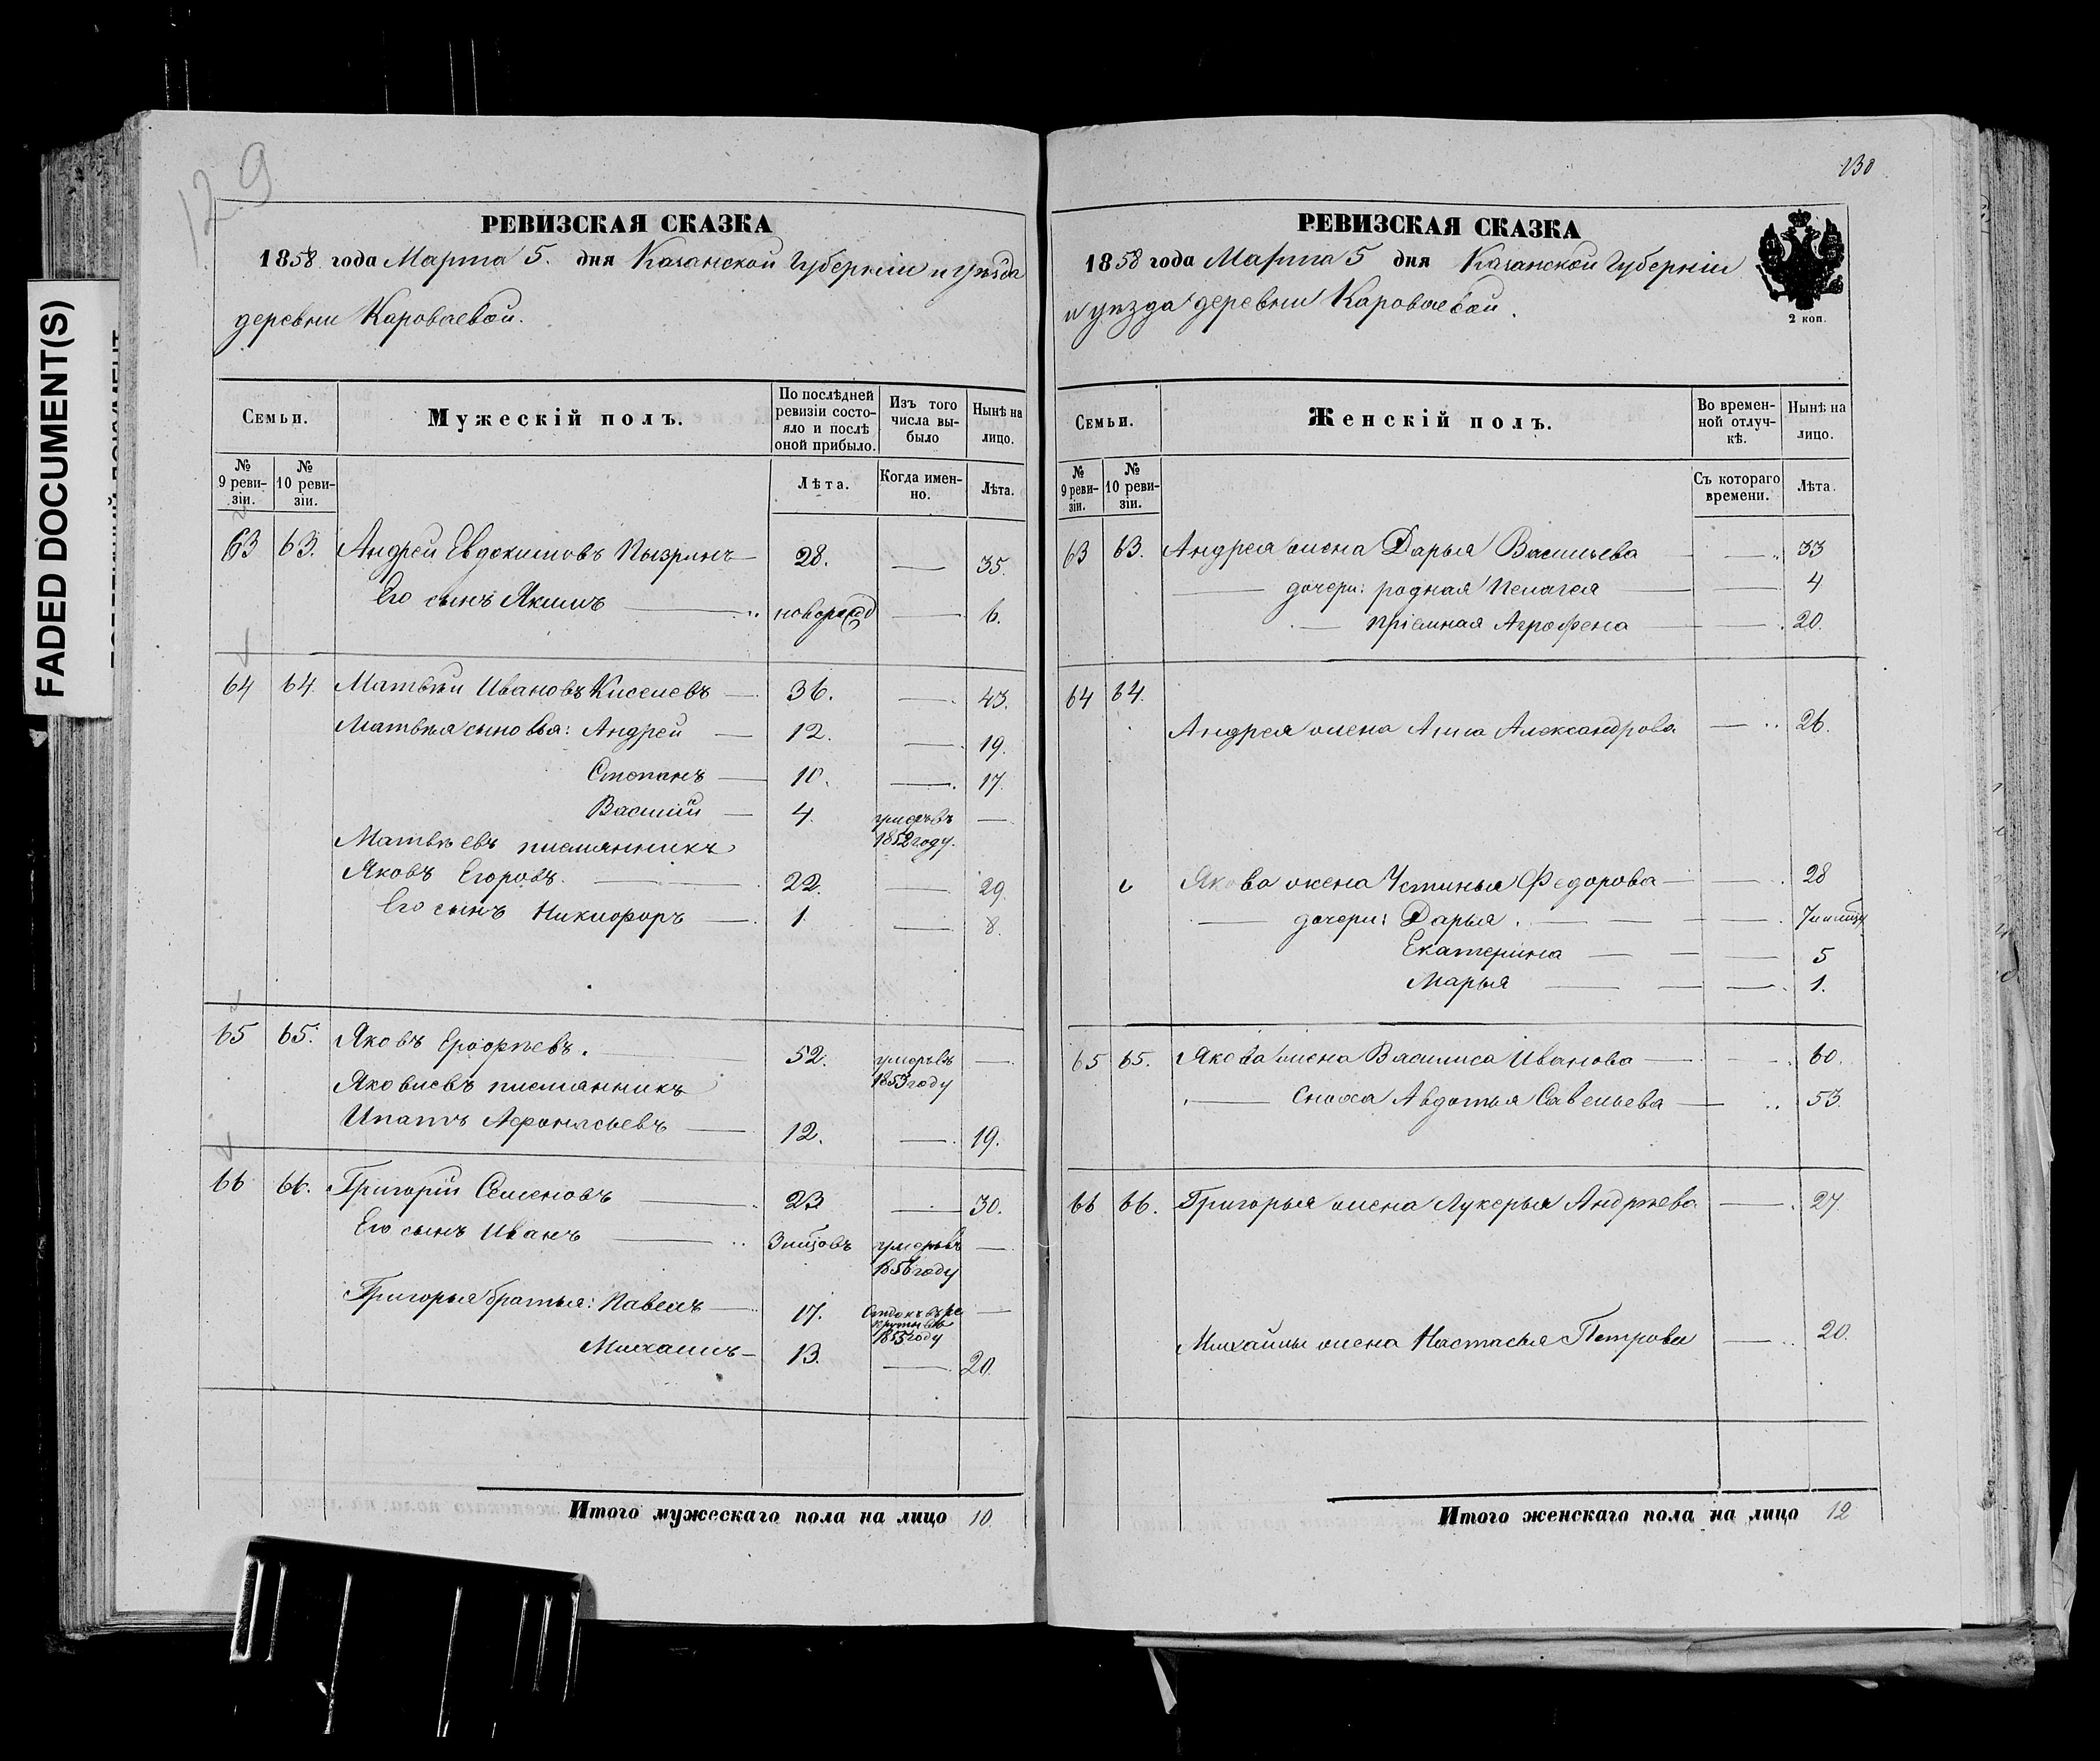 FADED DOCUMENT(S)
129
РЕВИЗСКАЯ СКАЗКА
1858 года Марта 5. дня Казанской Губерніи и уѣзда
деревни Короваевой.
Семьи.
Мужескій полъ.
По послѣдней ревизіи состояло и послѣ оной прибыло.
Изъ того числа выбыло
Нынѣ на лицо.
№ 9 ревизіи.
№ 10 ревизіи.
Лѣта.
Когда именно.
Лѣта.
63 63. Андрей Евдокимовъ 28. — 35.
Его сынъ Якимъ — новорожд — 6.
64 64. Матвѣй Ивановъ Киселевъ — 36. — 43.
Матвѣя сыновья: Андрей — 12. — 19.
Степанъ — 10. — 17.
Василій — 4. умеръ въ 1852 году. —
Матвѣевъ племянникъ
Яковъ Егоровъ. — 22. — 29.
Его сынъ Никифоръ — 1. — 8.
65 65. Яковъ — 52. умеръ въ 1853 году —
Яковлевъ племянникъ
Ипатъ Афонасьевъ — 12. — 19.
66 66. Григорій Семеновъ — 23 — 30.
Его сынъ Иванъ — 3 мѣсцовъ умеръ въ 1856 году —
Григорья братья: Павелъ — 17. Отдонъ въ рекруты въ 1855 году —
Михаилъ — 13. — 20.
Итого мужескаго пола на лицо 10.
130
РЕВИЗСКАЯ СКАЗКА
1858 года Марта 5 дня Казанской Губерніи
и уѣзда деревни Короваевой.
2 коп.
Семьи.
Женскій полъ.
Во временной отлучкѣ.
Нынѣ на лицо.
№ 9 ревизіи.
№ 10 ревизіи.
Съ котораго времени.
Лѣта.
63 63. Андрея жена Дарья Васильева — 33
— дочери: родная Пелагея — 4
— пріемная Агрофена — 20.
64 64.
Андрея жена Анна Александрова — 26.
Якова жена Устинья Федорова — 28
— дочери: Дарья. — 7
Екатерина — 5
Марья — 1.
65 65. Якова жена Василиса Иванова — 60.
— Сноха Авдотья Савельева — 53.
66 66. Григорья жена Лукерья Андрѣева — 27.
Михайлы жена Настасья Петрова — 20.
Итого женскаго пола на лицо 12